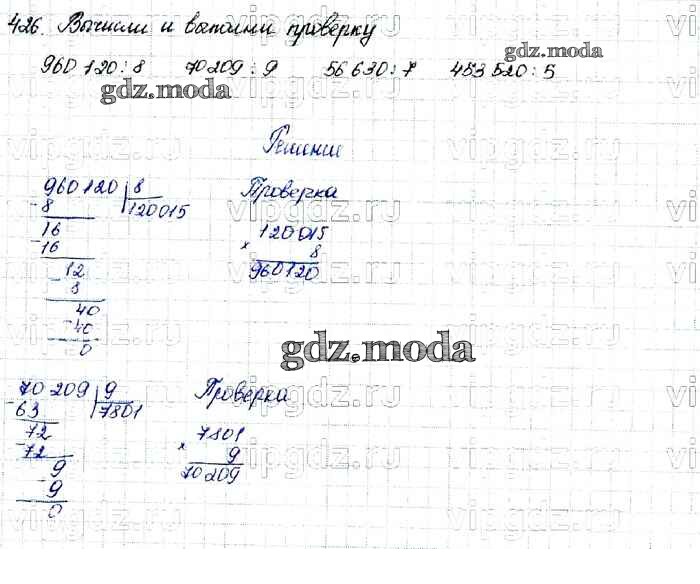 426. Вычисли и выполни проверку
960 120 : 8 70209 : 9 56 630 : 7 453 520 : 5
gdz.moda
gdz.moda
Решение
960120 8 Проверка
- 8 120015 120015
16 × 8
- 16 960120
12
- 8
40
- 40
0
gdz.moda
70 209 9 Проверка
- 63 7801 7801
72 × 9
- 72 70209
9
- 9
0
vipgdz.ru